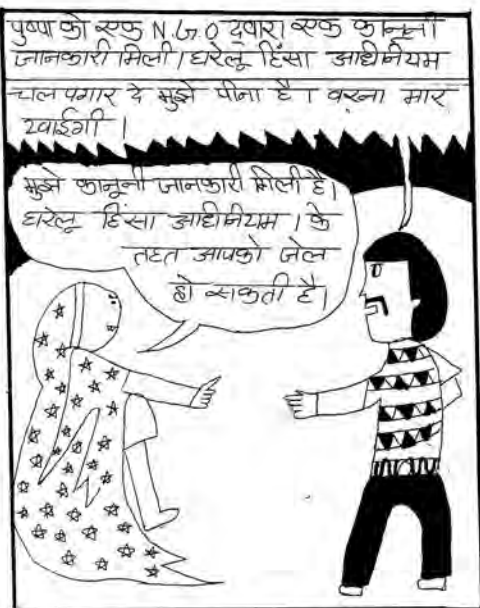 पुष्पा को एक N.G.O द्वारा एक कानूनी
जानकारी मिली। घरेलू हिंसा अधिनियम
चल पगार दे मुझे पीना है। वरना मार
खाईगी।
मुझे कानूनी जानकारी मिली है।
घरेलू हिंसा अधिनियम। के
तहत आपको जेल
हो सकती है।